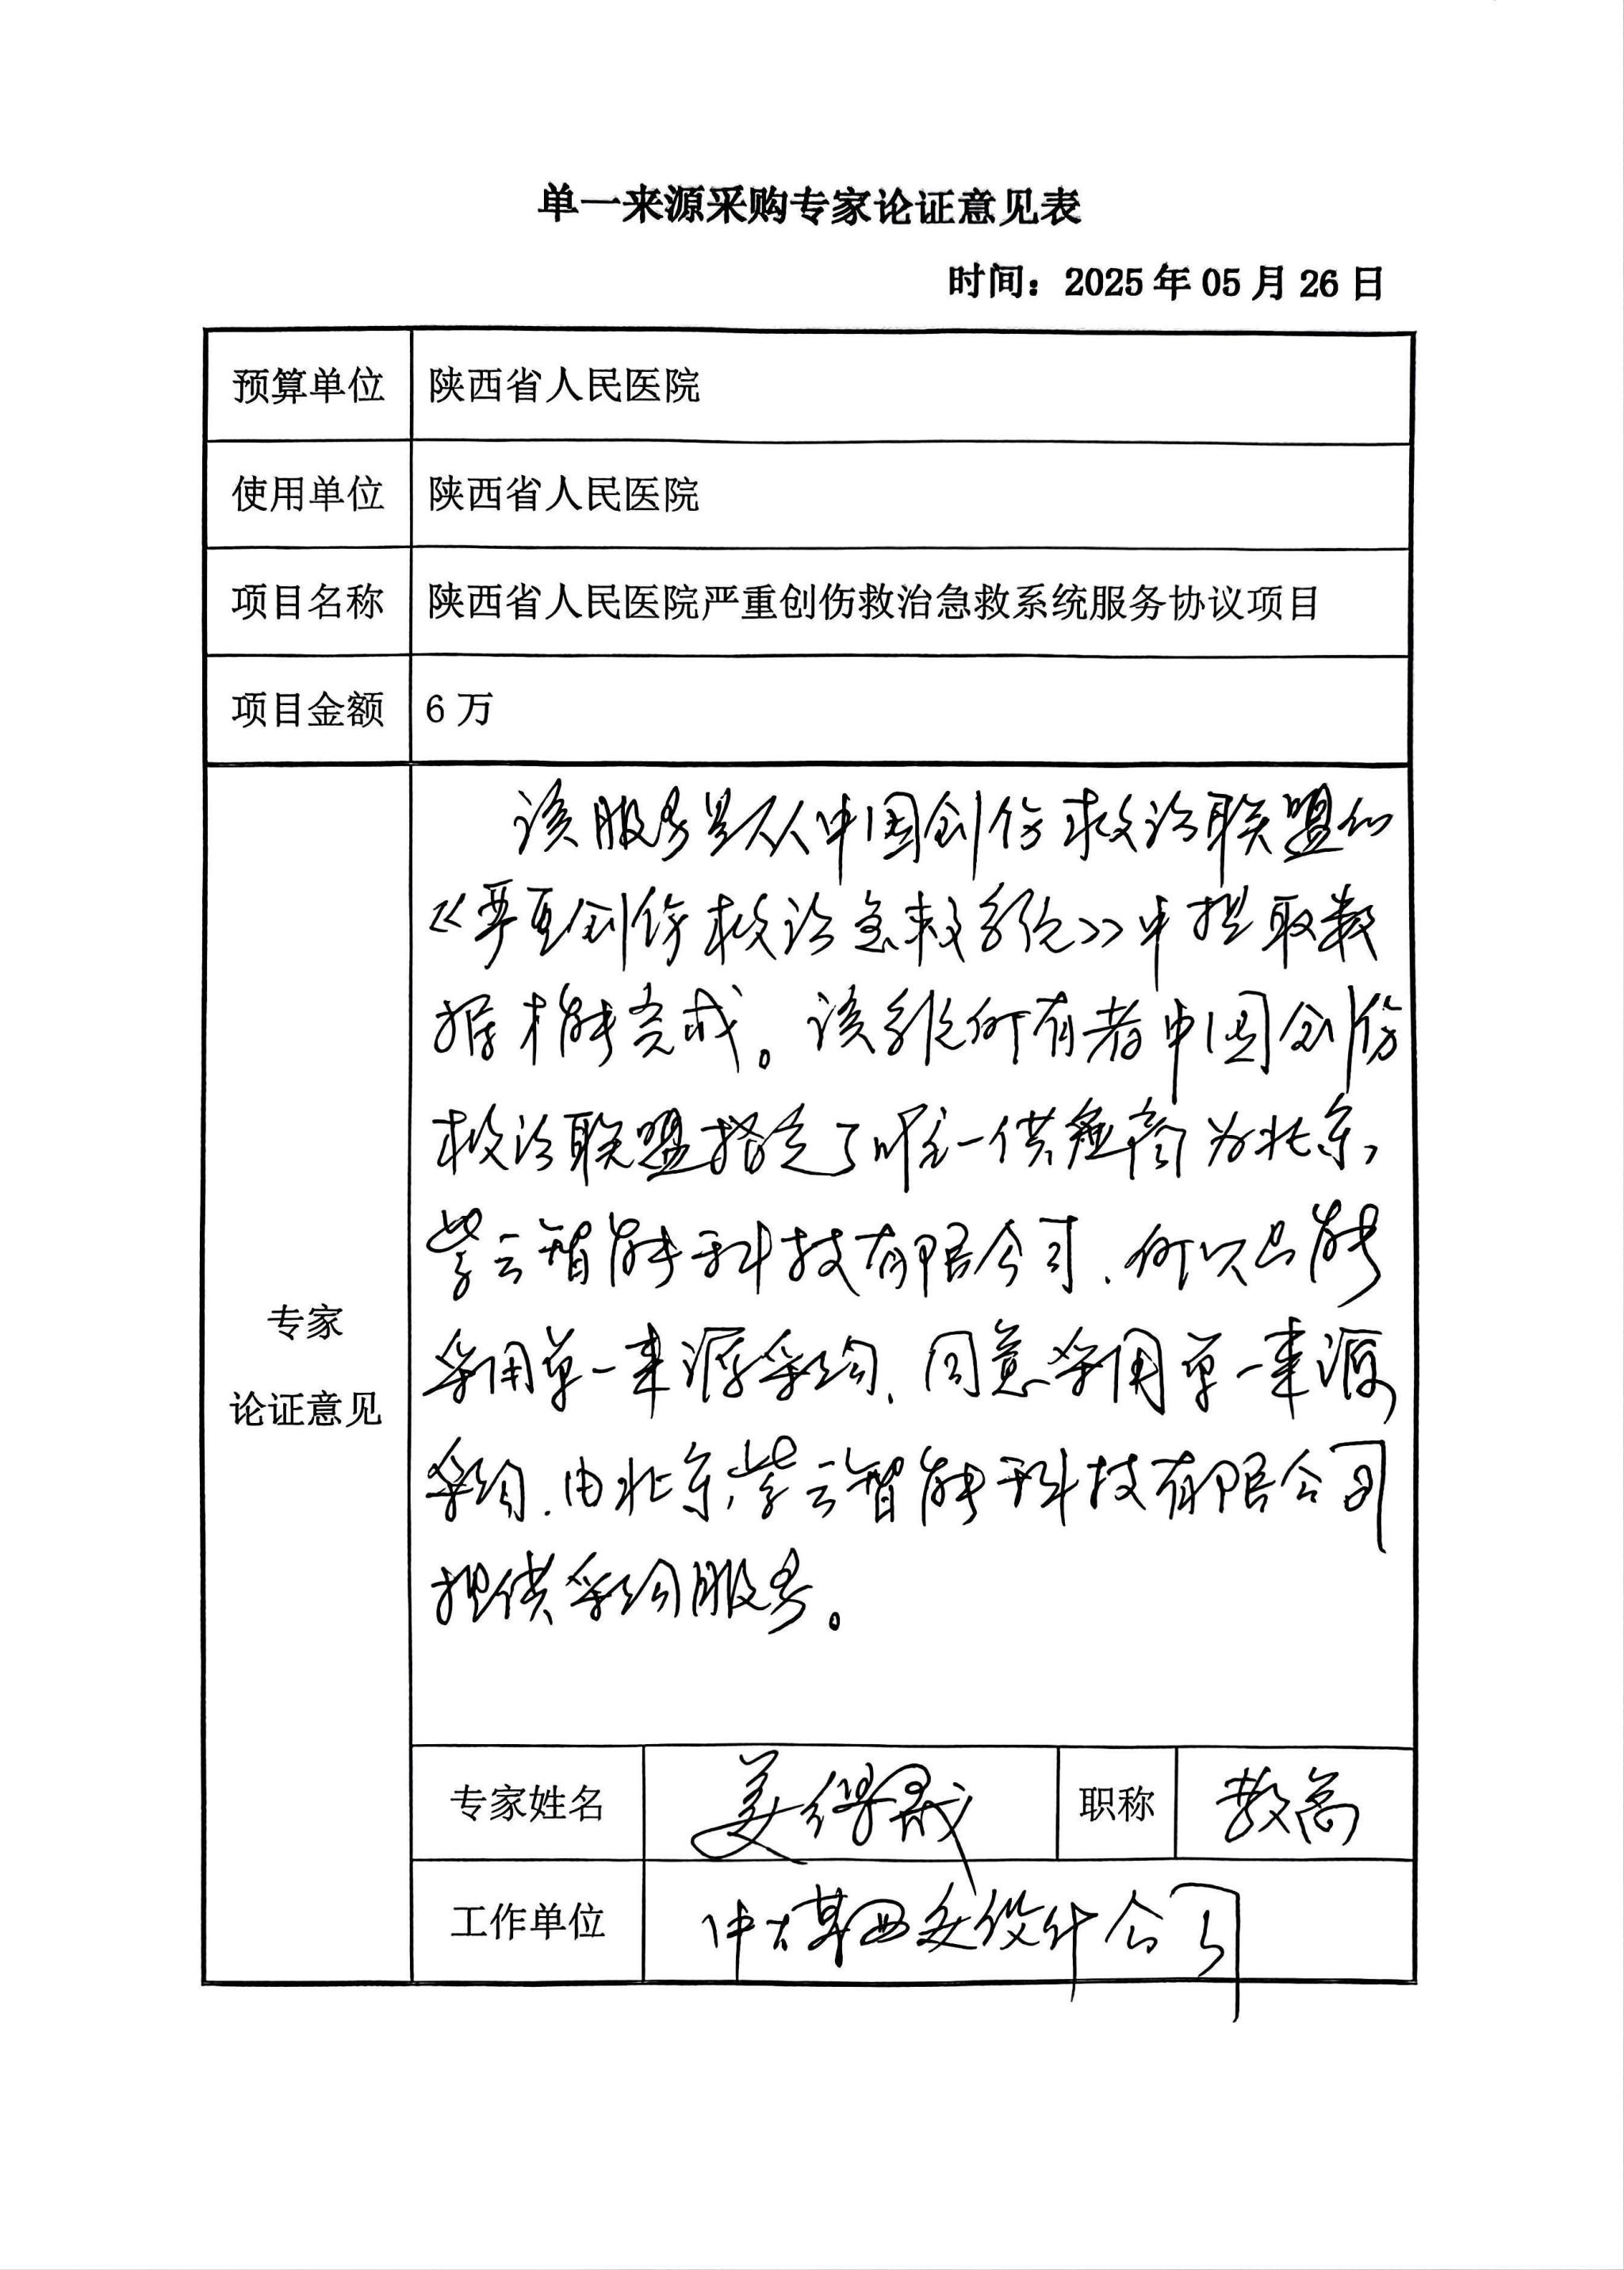 单一来源采购专家论证意见表
时间：2025年05月26日
预算单位 陕西省人民医院
使用单位 陕西省人民医院
项目名称 陕西省人民医院严重创伤救治急救系统服务协议项目
项目金额 6万
专家
论证意见
该服务是从中国创伤救治联盟的
《严重创伤救治急救系统》中提取数
据才能完成。该系统所有者中国创伤
救治联盟指定了唯一供应商为北京
紫云智能科技有限公司，所以只能
采用单一来源采购，同意采用单一来源
采购，由北京紫云智能科技有限公司
提供采购服务。
专家姓名 姜 职称 教高
工作单位 中煤西安设计公司